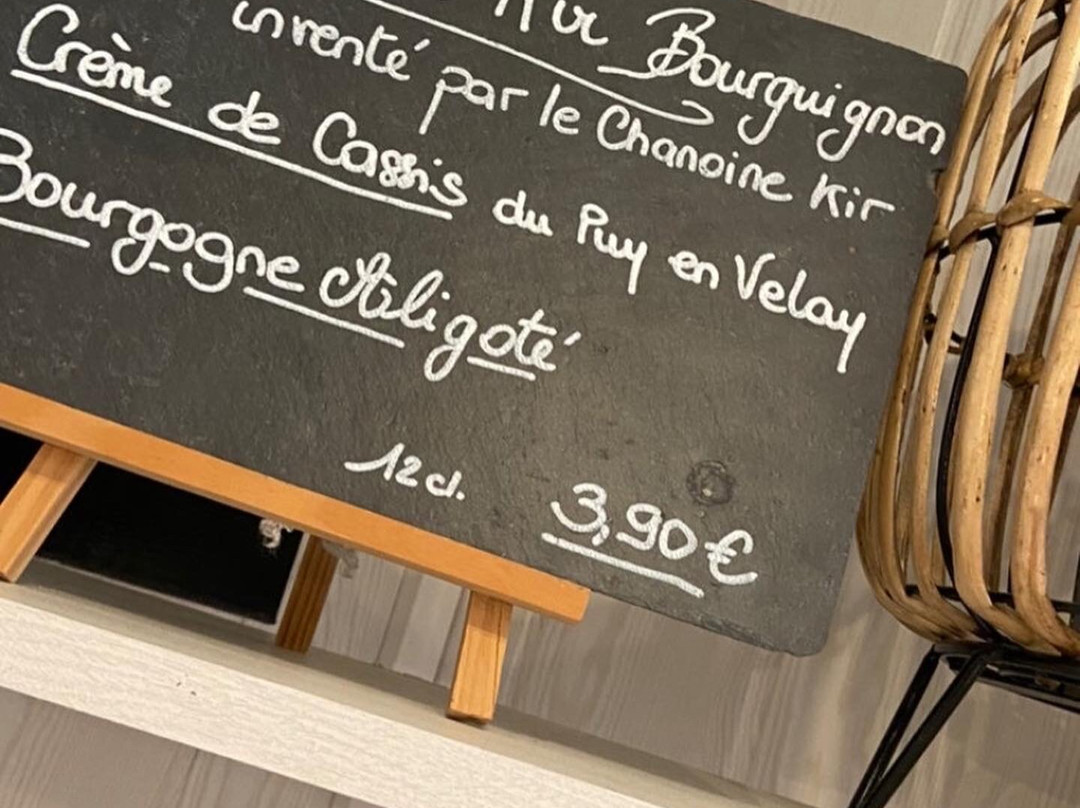 Kir Bourguignon
inventé par le Chanoine Kir
Crème de Cassis du Puy en Velay
Bourgogne Aligoté
12cl. 3,90€